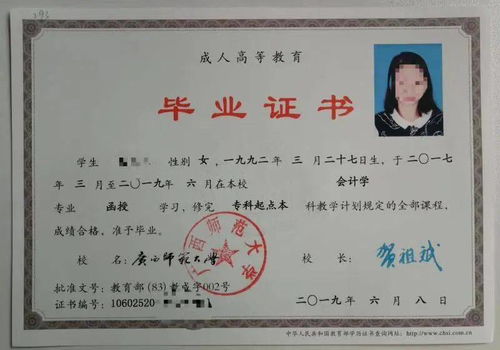 293
成人高等教育
毕业证书
学生 性别 女，一九九二年 三 月二十七日生，于二〇一七
年 三 月至二〇一九年 六 月在本校 会计学
专业 函授 学习，修完 专科起点本 科教学计划规定的全部课程，
成绩合格，准予毕业。
校 名：广西师范大学 校 长：贺祖斌
广西师范大学
批准文号：教育部 (83) 字002号
证书编号：10602520
二〇一九年 六 月 八 日
中华人民共和国教育部学历证书查询网址：http://www.chsi.com.cn